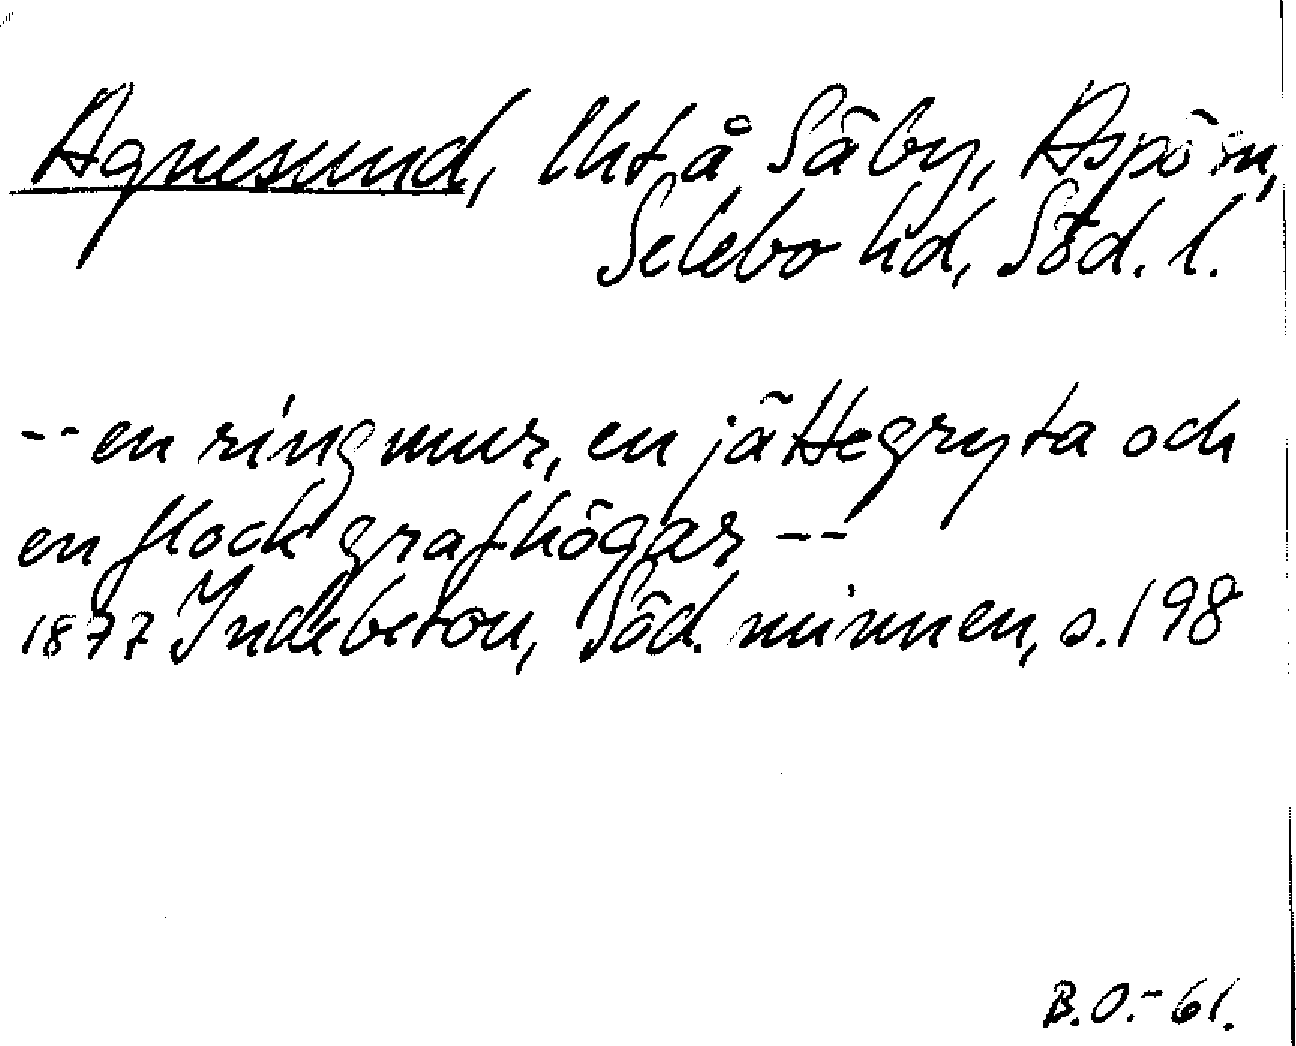 Agnesund, lht å Säby, Aspö sn,
Selebo hd, Söd. l.
-- en ringmur, en jättegryta och
en flock grafhögar --
1877 Indebetou, Söd. minnen, s. 198
B.O.-61.